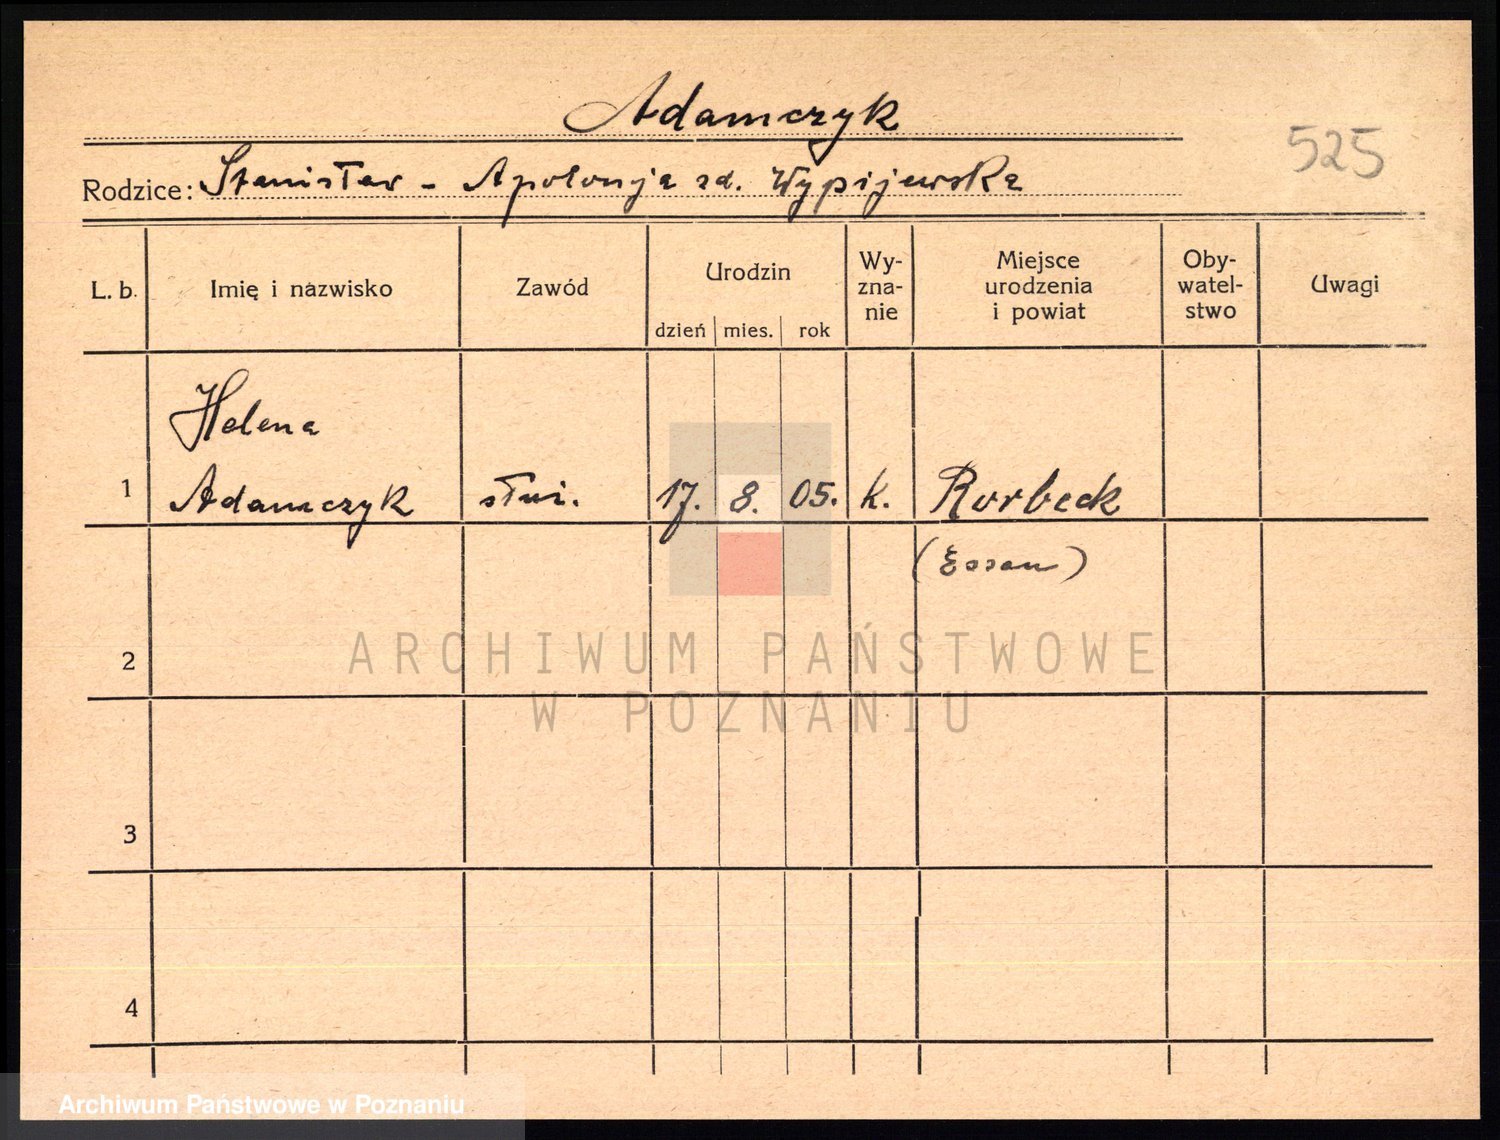 Adamczyk
525
Rodzice: Stanisław - Apolonja zd. Wypijewska
L. b.
Imię i nazwisko
Zawód
Urodzin
dzień mies. rok
Wy-
zna-
nie
Miejsce
urodzenia
i powiat
Oby-
watel-
stwo
Uwagi
Helena
1 Adamczyk 17. 8. 05. k. Rorbeck
(Essen)
2
ARCHIWUM PAŃSTWOWE
W POZNANIU
3
4
Archiwum Państwowe w Poznaniu